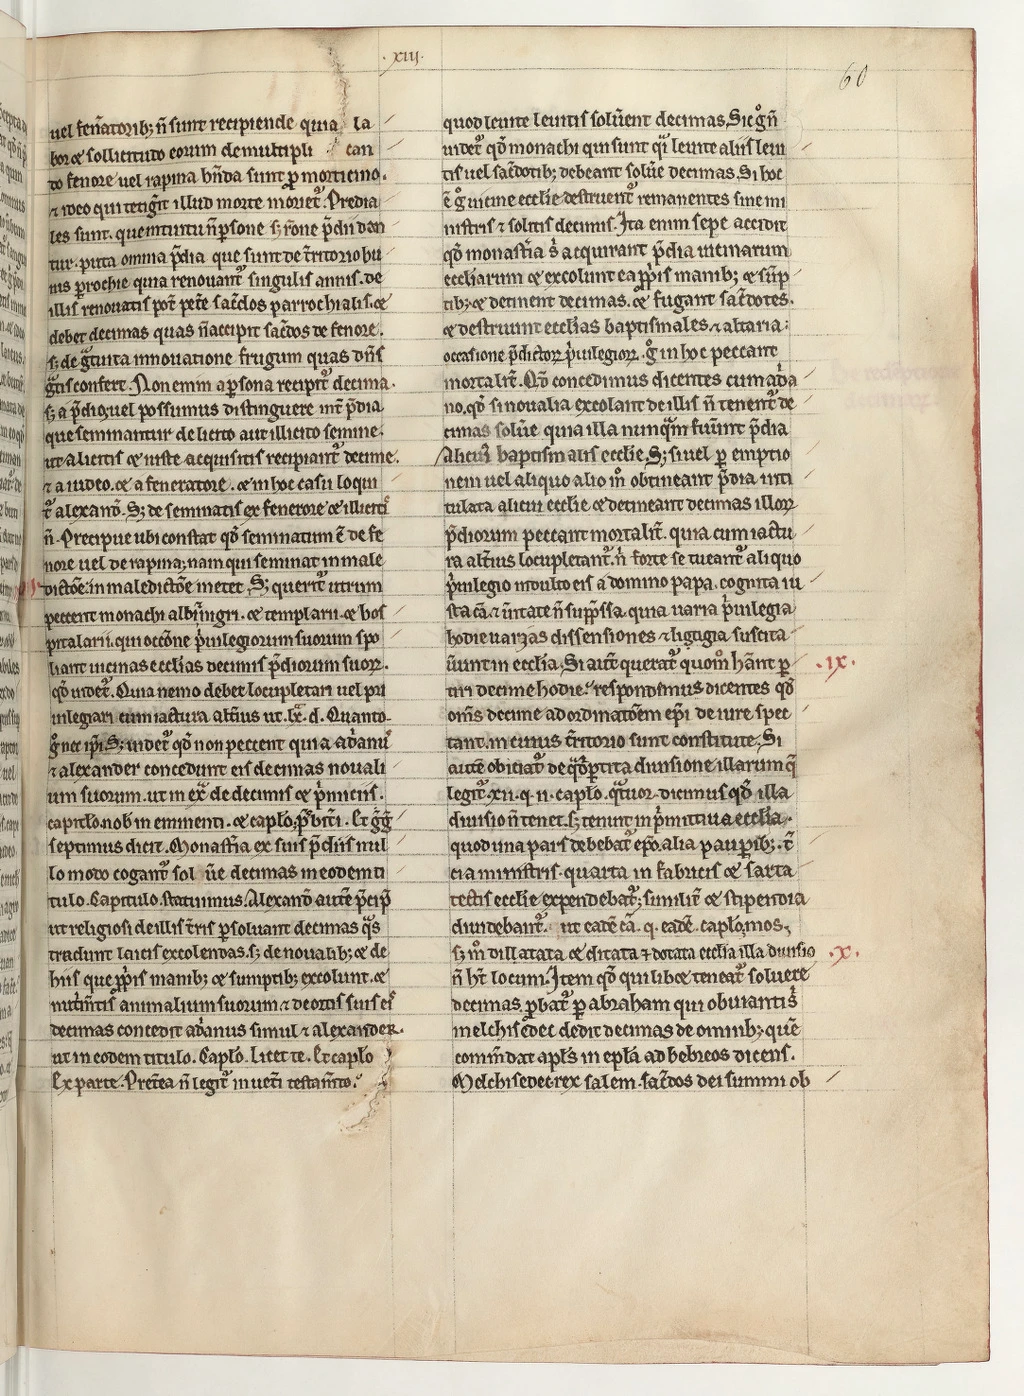 .xiii.
60
uel fen̄atorib; n̄ sunt recipiende quia la
bor ⁊ sollicitudo eorum de multipli can
do fenore uel rapina hn̄da sunt ꝑ morticino.
⁊ ideo qui tetig̾it illud morte moriet᷑. Predia
les sunt. que intuitu n̄ ꝑsone s; r̄one p̄dii dan
tur. puta omnia p̄dia que sunt de t̄ritorio hu
ius ꝑrochie quia renouant᷑ singulis annis. de
illis renouatis pot̄ pet̄e sac̄dos parrochialis. ⁊
debet decimas quas n̄ accipit sac̄dos de fenore.
s; de g̃tuita innouatione frugum quas dn̄s
g̃tis confert. Non enim a ꝑsona recipit᷑ decima.
s; a p̄dio, uel possumus distinguere int̄ p̄dia
que seminantur de licito aut illicito semine.
ut a licitis ⁊ iuste acquisitis recipiant᷑ decime.
⁊ a iudeo. ⁊ a feneratore. ⁊ in hoc casu loqui
t᷑ alexand̄. S; de seminatis ex fenerore ⁊ illicit̾
n̄. Precipue ubi constat qd̄ seminatum ē de fe
nore uel de rapina, nam qui seminat in male
dictōe. in maledictōe metet. S; querit᷑ utrum
peccent monachi albi, nigri. ⁊ templarii. ⁊ hos
pitalarii. qui occōne p̾uilegiorum suorum spo
liant uicinas ecclesias decimis p̄diorum suoꝝ.
qd̄ uidet᷑. Quia nemo debet locupletari uel pri
uilegiari cum iactura alt̾ius ut. lx̄. d. Quanto.
g̊ nec ip̄i. S; uidet᷑ qd̄ non peccent quia ad̾anus
⁊ alexander concedunt eis decimas nouali
um suorum. ut in ext̾ de decimis ⁊ p̾mitiis.
capitl̄o. nob̾ in eminenti. ⁊ capl̄o. p̄bit̾i. Et g̾g̾
septimus dicit. Monast̾ia ex suis p̄diis nul
lo modo cogant᷑ sol ūe decimas in eodem ti
tulo. Capitulo. statuimus. Alexand̾ aut̄ p̄cip̾
ut religiosi de illis t̾ris ꝑsoluant decimas q̃s
tradunt laicis excolendas. s; de noualib; ⁊ de
hiis que ꝓpͥis manib; ⁊ sumptib; excolunt. ⁊
nut̾mtis animalium suorum. ⁊ de ortis suis eis
decimas concedit ad̾anus simul ⁊ alexander.
ut in eodem titulo. Capl̄o. Licet te. Et capl̄o
Ex parte. Pret̾ea n̄ legit᷑ in uet̾i testam̄to.
quod leuite leuitis solūent decimas, Sic g̊ n̄
uidet᷑ qd̄ monachi qui sunt qͣi leuite aliis leui
tis uel sac̄dotib; debeant solūe decimas. Si hoc
ē g̊ uicine ecclie destruent᷑ remanentes sine mi
nistris ⁊ solitis decimis. Ita enim sepe accidit
qd̄ monast̾ia s̾ acquirant p̄dia uicinarum
eccliarum ⁊ excolunt ea ꝓpͥis manib; ⁊ sūp
tib; ⁊ detinent decimas. ⁊ fugant sac̄dotes.
⁊ destruunt ecclias baptismales. ⁊ altaria:
occasione p̄dictoꝝ p̾uilegioꝝ. g̊ in hoc peccant
mortalit̄. Qd̄ concedimus dicentes cum ad̾a
no. qd̄ si noualia excolant de illis n̄ tenent᷑ de
cimas solūe quia illa nunqͣm fūunt p̄dia
Alicuius baptismalis ecclie. S; si uel ꝑ emptio
nem uel aliquo alio mͦ obtineant p̄dia inti
tulata alicui ecclie ⁊ detineant decimas illoꝝ
p̄diorum peccant mortalit̄. quia cum iactu
ra alt̾ius locupletant᷑. n̄ forte se tueant᷑ aliquo
p̾uilegio indulto eis a domino papa. cognita iu
sta cā. ⁊ ūitate n̄ supp̄ssa. quia uaria p̾uilegia
hodie uarias dissensiones ⁊ litigia suscita
ūunt in ecclia. Si aut̄ querat᷑ quom̊ hn̄ant ꝑ
tiri decime hodie? respondemus dicentes qd̄
om̄s decime ad ordinatōem ep̄i de iure spec
tant. in cuius t̾ritorio sunt constitute. Si
aut̄ obiciat᷑ de qͣdꝑtita diuisione illarum q̄
legit᷑. xii. q. ii. capl̄o. qͣtuor. dicimus qd̄ illa
diuisio n̄ tenet. s; tenuit in p̾mitiua ecclia.
quod una pars debebat᷑ ep̄o, alia pauꝑib;. t̾
cia ministris. quarta in fabricis ⁊ sarta
tectis ecclie expendebat᷑; similit̄ ⁊ stipendia
diuidebant᷑. ut eadē cā. q. eadē. capl̄o, mos,
s; m̊ dillatata ⁊ ditata ⁊ dotata ecclia illa diuisio
n̄ ht̄ locum. Item qd̄ quilibet teneat᷑ soluere
decimas, ꝓbat᷑ ꝑ abraham qui obuiantis
melchisedec dedit decimas de omnib; quē
comm̄dat apl̄s in epl̄a ad hebreos dicens.
Melchisedec rex salem. sac̄dos dei summi ob
.ix.
.x.